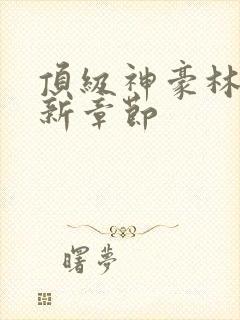 頂級神豪林
新章節
曙夢